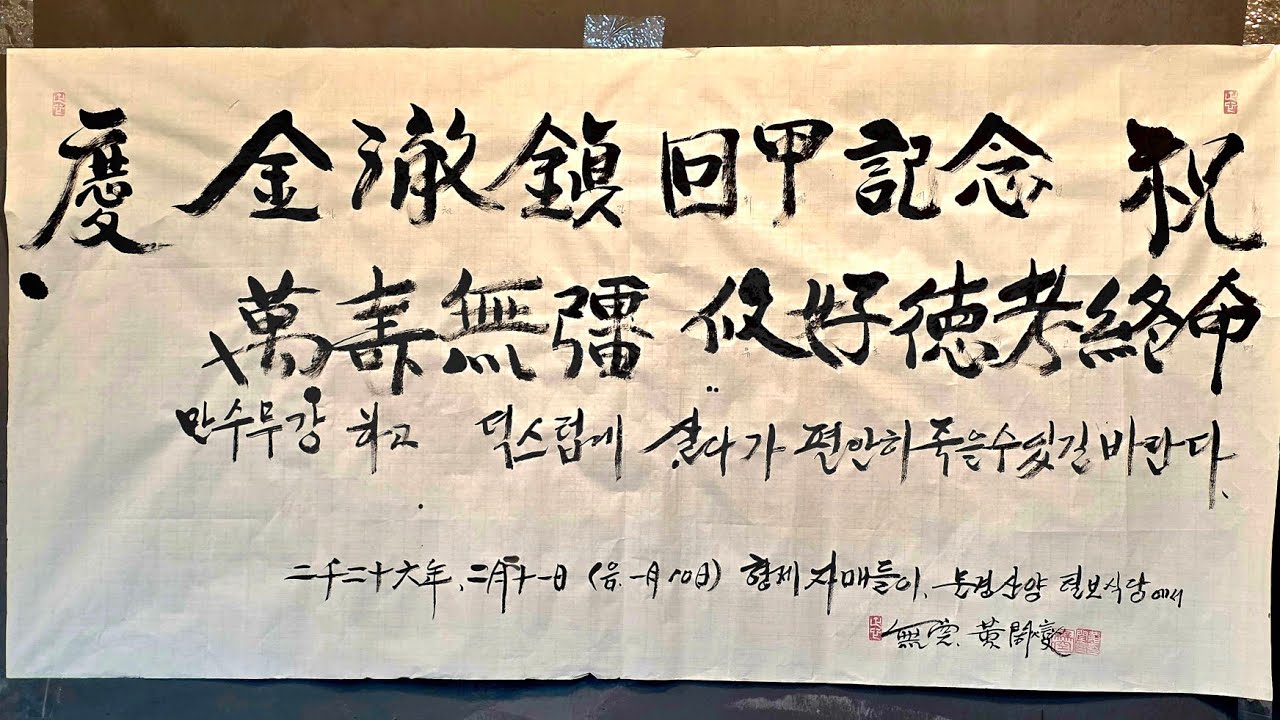 慶 金澈鎭 回甲記念 祝
萬壽無疆 攸好德考終命
만수무강 하고 덕스럽게 살다가 편안히 죽을수 있길 바란다.
二千二十六年. 二月二十一日 (음. 一月 10日) 형제 자매들이. 문경산양 털보식당에서
黃